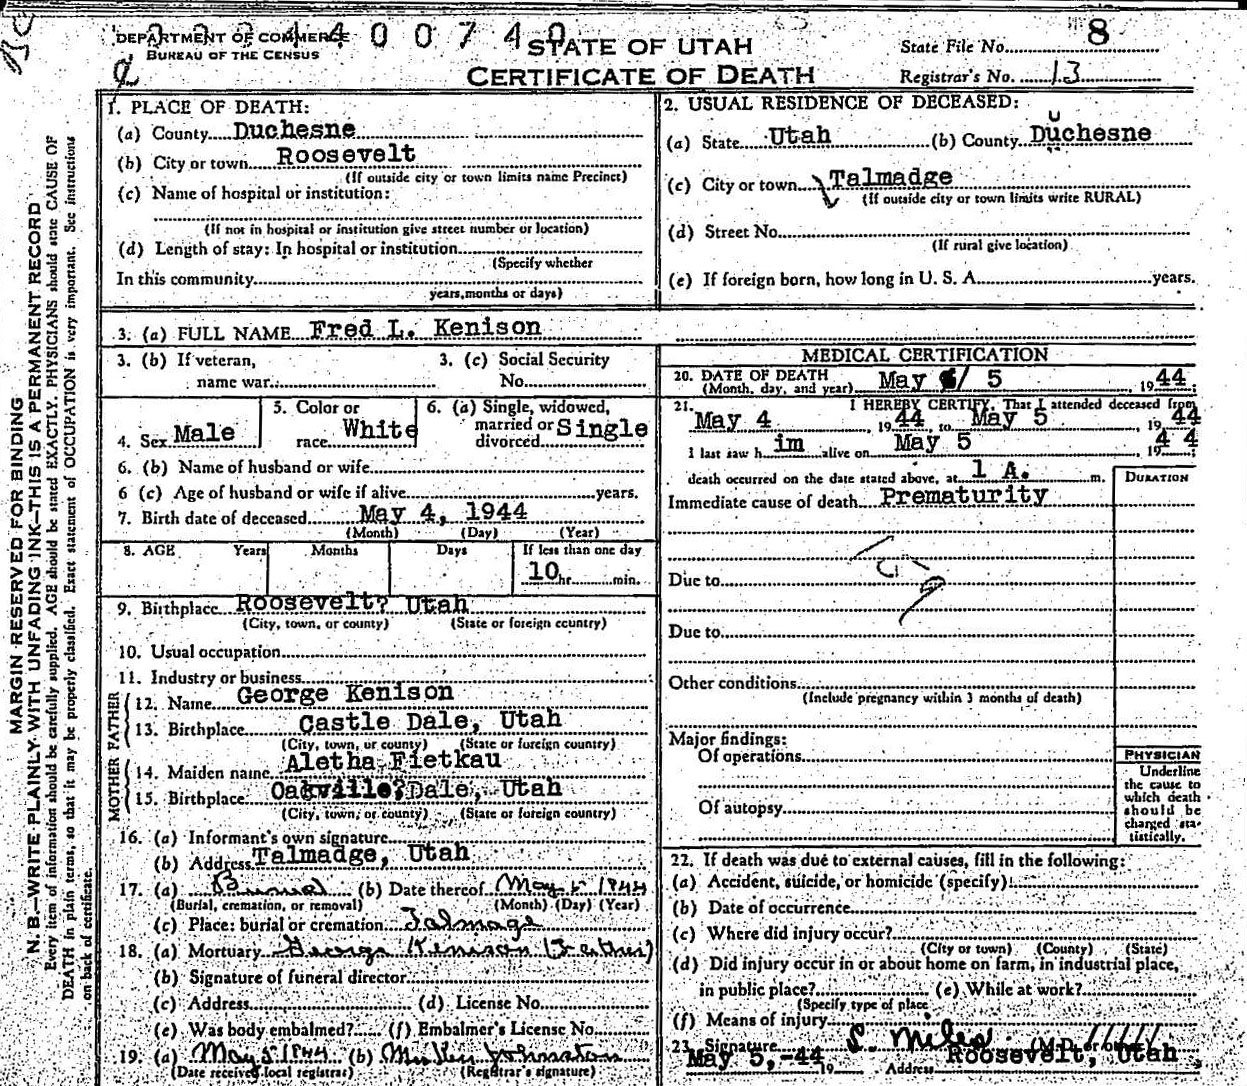 DEPARTMENT OF COMMERCE
BUREAU OF THE CENSUS
4 4 0 0 7 4 0
STATE OF UTAH
CERTIFICATE OF DEATH
State File No. 8
Registrar's No. 13
MARGIN RESERVED FOR BINDING
N. B.—WRITE PLAINLY WITH UNFADING INK—THIS IS A PERMANENT RECORD
Every item of information should be carefully supplied. AGE should be stated EXACTLY. PHYSICIANS should state CAUSE OF
DEATH in plain terms, so that it may be properly classified. Exact statement of OCCUPATION is very important. See instructions
on back of certificate.
1. PLACE OF DEATH:
(a) County Duchesne
(b) City or town Roosevelt
(If outside city or town limits name Precinct)
(c) Name of hospital or institution:
(If not in hospital or institution give street number or location)
(d) Length of stay: In hospital or institution
(Specify whether
In this community
years, months or days)
2. USUAL RESIDENCE OF DECEASED:
(a) State Utah (b) County Duchesne
(c) City or town Talmadge
(If outside city or town limits write RURAL)
(d) Street No.
(If rural give location)
(e) If foreign born, how long in U. S. A. years.
3. (a) FULL NAME Fred L. Kenison
3. (b) If veteran, name war
3. (c) Social Security No.
4. Sex Male
5. Color or race White
6. (a) Single, widowed, married or divorced Single
6. (b) Name of husband or wife
6 (c) Age of husband or wife if alive years.
7. Birth date of deceased May 4, 1944
(Month) (Day) (Year)
8. AGE Years Months Days If less than one day
10 hr. min.
9. Birthplace Roosevelt? Utah
(City, town, or county) (State or foreign country)
10. Usual occupation
11. Industry or business
FATHER
12. Name George Kenison
13. Birthplace Castle Dale, Utah
(City, town, or county) (State or foreign country)
MOTHER
14. Maiden name Aletha Fietkau
15. Birthplace Oakville? Dale, Utah
(City, town, or county) (State or foreign country)
16. (a) Informant's own signature
(b) Address Talmadge, Utah
17. (a) Burial (b) Date thereof May 5 1944
(Burial, cremation, or removal) (Month) (Day) (Year)
(c) Place: burial or cremation Talmage
18. (a) Mortuary George Kenison (Father)
(b) Signature of funeral director
(c) Address (d) License No.
(e) Was body embalmed? (f) Embalmer's License No.
19. (a) May 5 1944 (b) Johnston
(Date received local registrar) (Registrar's signature)
MEDICAL CERTIFICATION
20. DATE OF DEATH
(Month, day, and year) May 5, 1944
21. I HEREBY CERTIFY, That I attended deceased from
May 4, 1944, to May 5, 1944
I last saw h im alive on May 5, 1944
death occurred on the date stated above, at 1 A. m.
DURATION
Immediate cause of death Prematurity
Due to
Due to
Other conditions
(Include pregnancy within 3 months of death)
Major findings:
Of operations
Of autopsy
PHYSICIAN
Underline
the cause to
which death
should be
charged sta-
tistically.
22. If death was due to external causes, fill in the following:
(a) Accident, suicide, or homicide (specify)
(b) Date of occurrence
(c) Where did injury occur?
(City or town) (County) (State)
(d) Did injury occur in or about home on farm, in industrial place,
in public place? (e) While at work?
(Specify type of place
(f) Means of injury
23. Signature S. Miles (M.D.
May 5,-44 19 Address Roosevelt, Utah